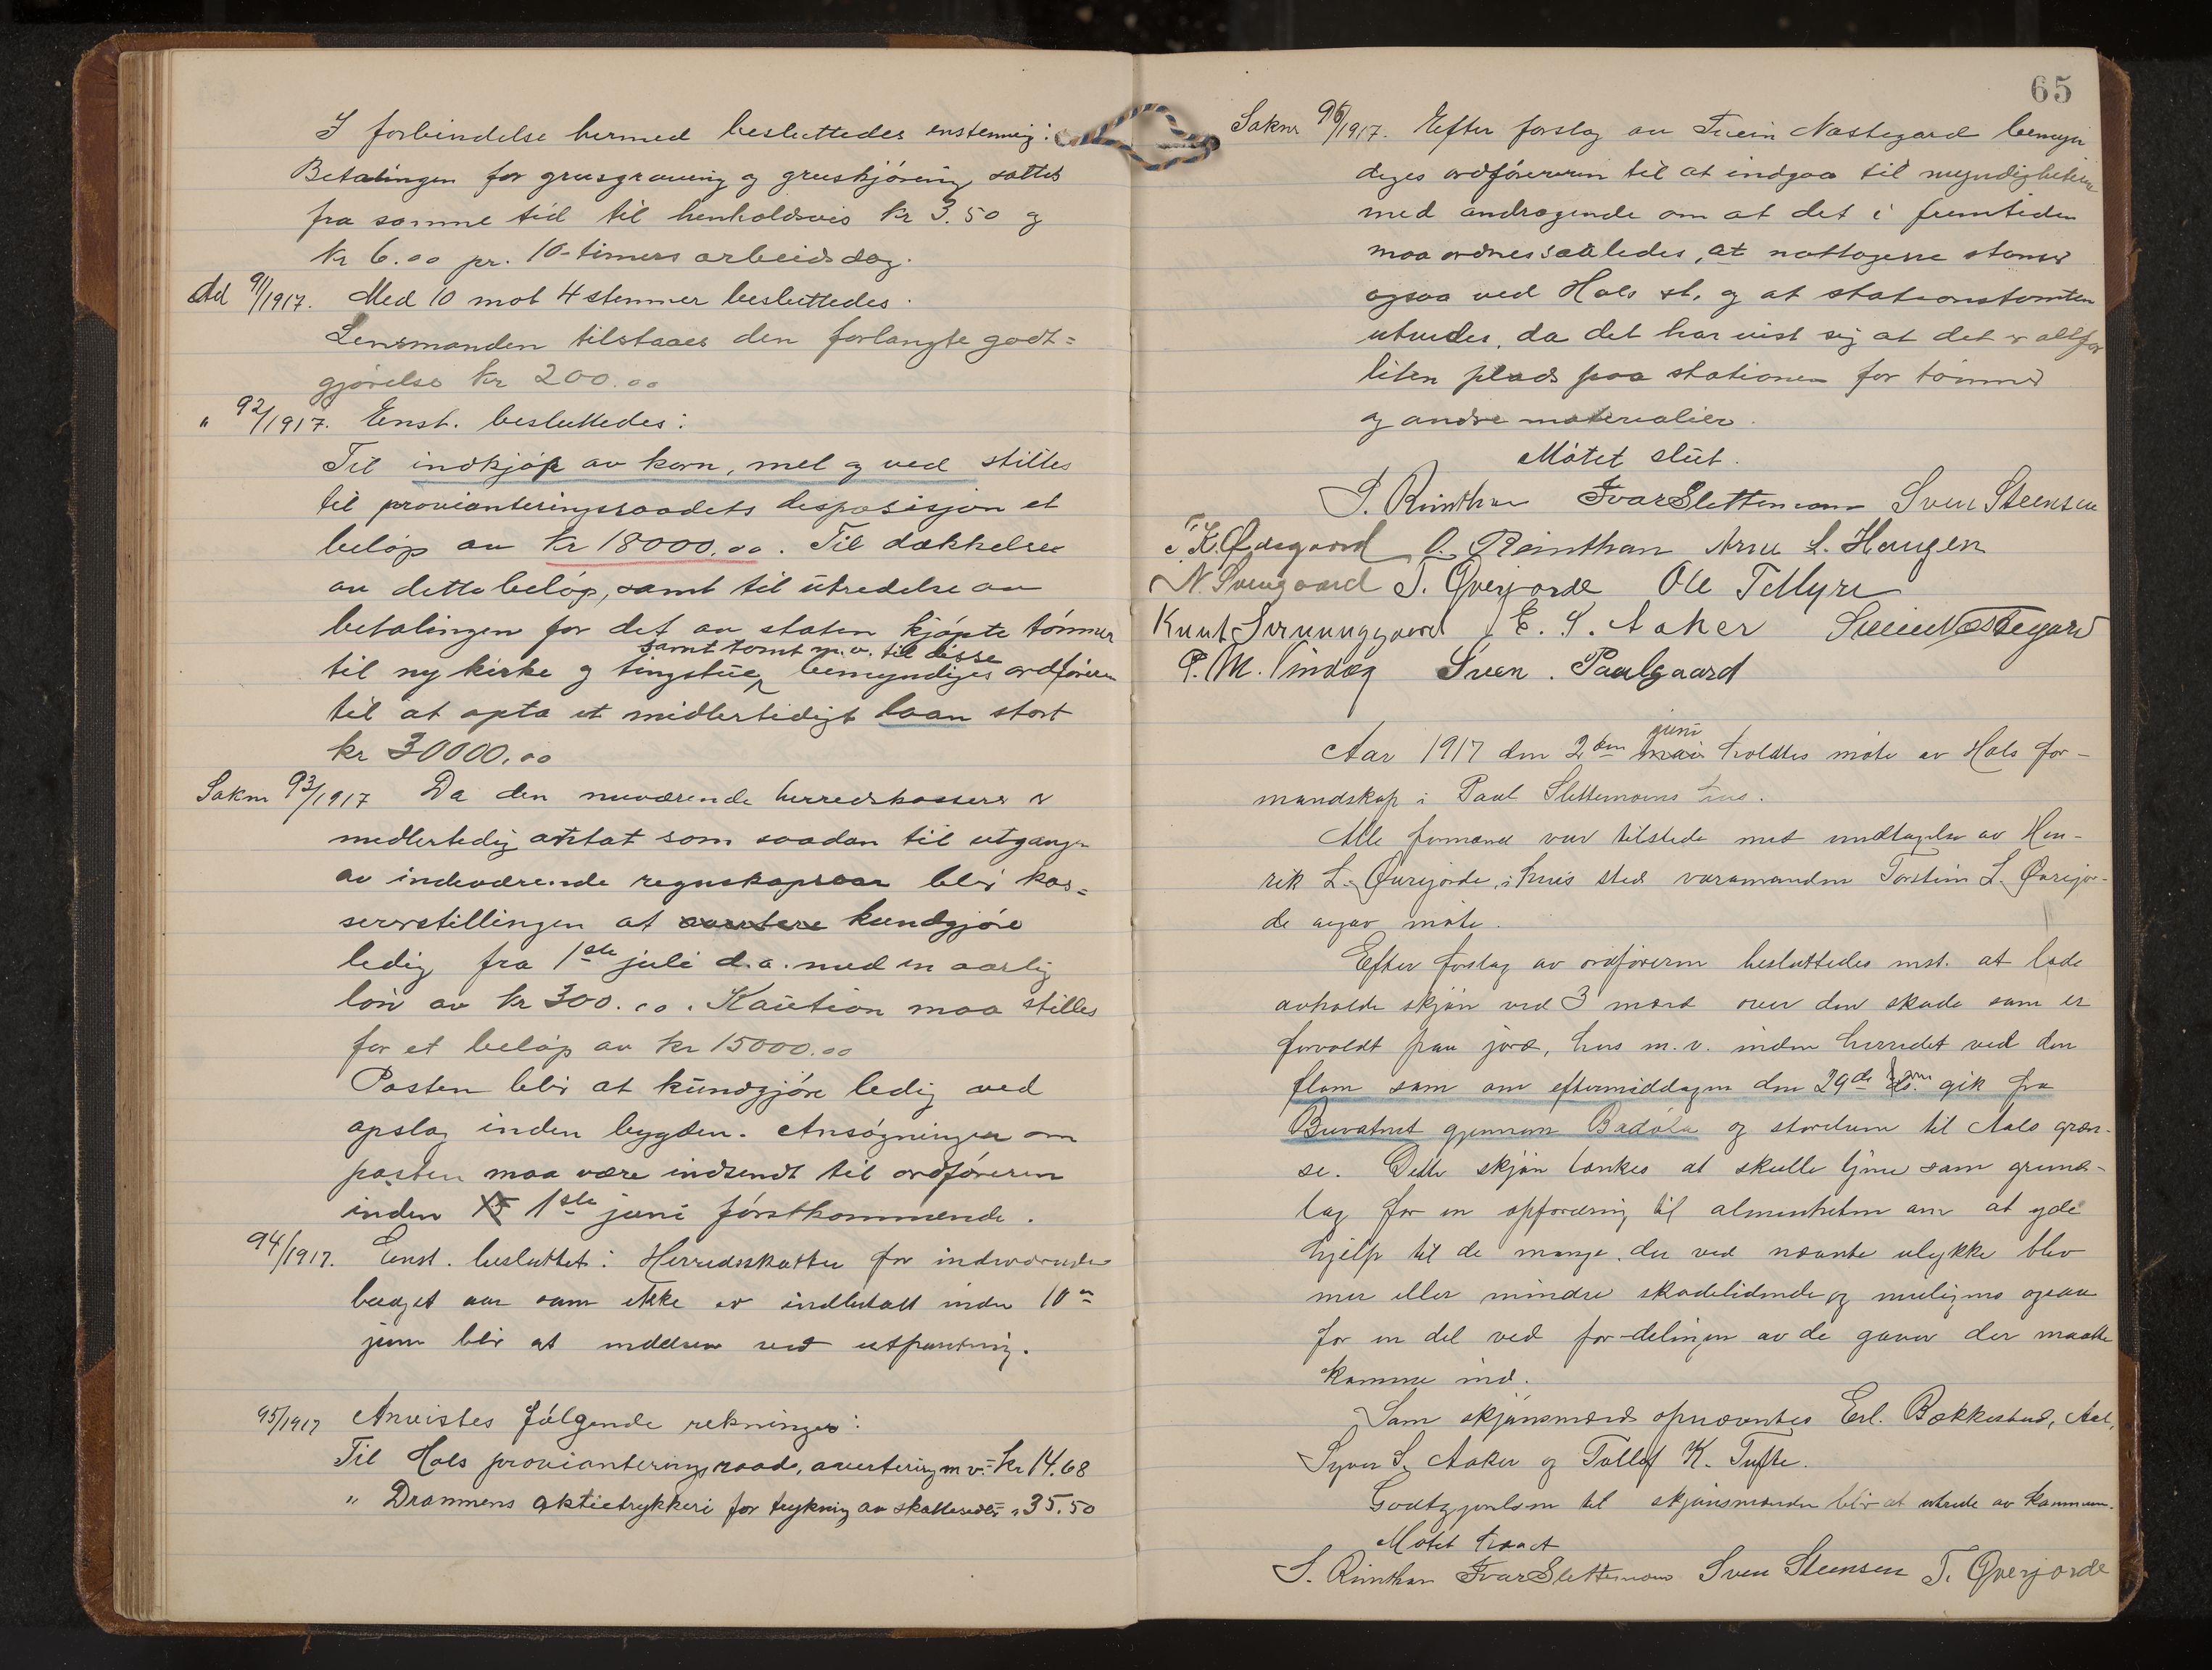 I forbindelse hermed besluttedes enstemmig:
Betalingen for grusgravning og gruskjöring sættes
fra samme tid til henholdsvis kr 3.50 og
kr 6.00 pr. 10-timers arbeidsdag.
Ad 91/1917. Med 10 mot 4 stemmer besluttedes.
Lensmanden tilstaaes den forlangte godt=
gjörelse kr 200.00
" 92/1917. Enst. besluttedes:
Til indkjöp av korn, mel og ved stilles
til provianteringsraadets disposisjon et
belöp av kr 18000.00. Til dækkelse
av dette belöp, samt til utredelse av
betalingen for det av staten kjöpte tömmer
samt tomt m.v. til disse
til ny kirke og tingstue bemyndiges ordföreren
til at opta et midlertidigt laan stort
kr 30000.00
Saknr 93/1917 Da den nuværende herredskasserer er
midlertidig antat som saadan til utgangen
av indeværende regnskapsaar blir kas=
sererstillingen at avertere kundgjöre
ledig fra 1ste juli d.a. med en aarlig
lön av kr 300.00. Kaution maa stilles
for et belöp av kr 15000.00
Posten blir at kundgjöre ledig ved
opslag inden bygden. Ansögninger om
posten maa være indsendt til ordföreren
inden 1ste juni förstkommende.
94/1917. Enst. besluttet: Herredsskatter for indeværende
budget aar som ikke er indbetalt inden 10de
juni blir at inddrive ved utpantning.
95/1917 Anvistes fölgende rekninger:
Til Hols provianteringsraad, avertering m v.= kr 14.68
" Drammens Aktietrykkeri for trykning av skattesedler= " 35.50
65
Saknr 96/1917. Efter forslag av Svein Nestegard bemyn
diges ordföreren til at indgaa til myndigheterne
med andragende om at det i fremtiden
maa ordnes saaledes, at nattogene stanser
ogsaa ved Hols st. og at stationstomten
utvides, da det har vist sig at det er altfor
liten plads paa stationen for tömmer
og andre materialier.
Mötet slut.
S. Reinthon Ivar Slettemoen Sven Steensen
T. K. Ødegaard O. Reinthon Arne L. Haugen
N. Sveingaard T. Øvrejorde Ole T Myre
Knut Sernunggaard E. S. Aaker Svein Nestegard
P. M. Sindag Sven . Paulgaard
juni
Aar 1917 den 2den mai holdtes möte av Hols for-
mandskap i Paul Slettemoens hus.
Alle formænd var tilstede med undtagelse av Hen-
rik L. Øvrejorde, i hvis sted varamanden Torstein L. Øvrejor-
de avgav möte.
Efter forslag av ordföreren besluttedes enst. at lade
avholde skjön ved 3 mænd over den skade som er
forvoldt paa jord, hus m.v. inden herredet ved den
flom som om eftermiddagen den 29de f.m. gik fra
Buvatnet gjennem Bødöla og storelven til Aals græn-
se. Dette skjön tænkes at skulle tjene som grund-
lag for en opfordring til almenheten om at yde
hjelp til de mange der ved nævnte ulykke blev
mer eller mindre skadelidende og muligens ogsaa
for en del ved for-delingen av de gaver der maatte
komme ind.
Som skjönsmænd opnævntes Erl. Bækkestad, Aal,
Syver S. Aaker og Tollef K. Tufte.
Godtgjörelsen til skjönsmænden blir at utrede av kommunen.
Mötet hævet
S. Reinthon Ivar Slettemoen Sven Steensen T. Øverjorde